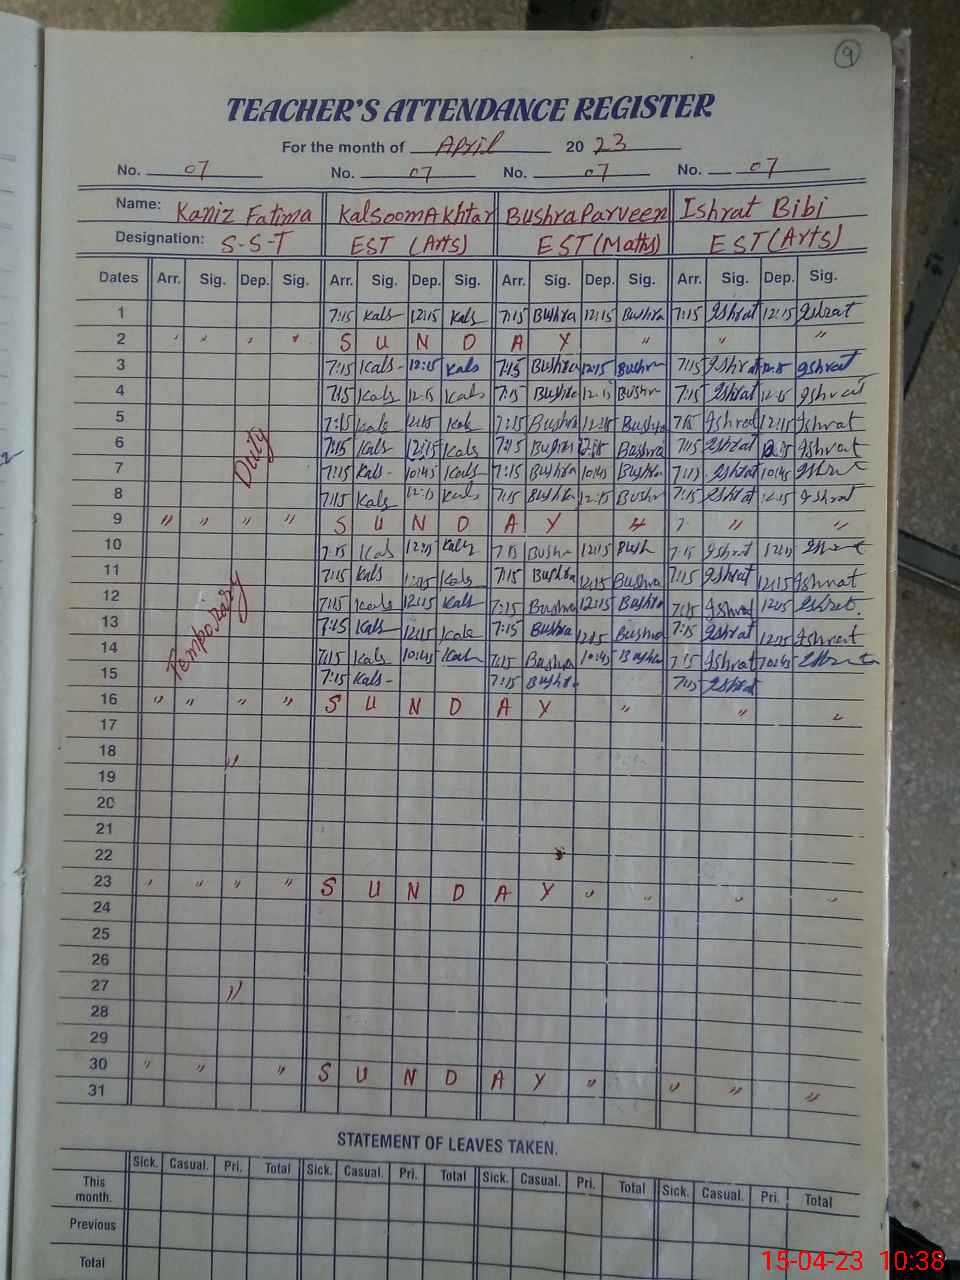 9
TEACHER'S ATTENDANCE REGISTER
For the month of April 2023
No. 07 No. 07 No. 07 No. 07
Name: Kaniz Fatima Kalsoom Akhtar Bushra Parveen Ishrat Bibi
Designation: S-S-T EST (Arts) EST (Maths) EST (Arts)
Dates Arr. Sig. Dep. Sig. Arr. Sig. Dep. Sig. Arr. Sig. Dep. Sig. Arr. Sig. Dep. Sig.
1 7:15 Kals 12:15 Kals 7:15 Bushra 12:15 Bushra 7:15 Ishrat 12:15 Ishrat
2 " " " " S U N D A Y " " "
3 7:15 Kals 12:15 Kals 7:15 Bushra 12:15 Bushra 7:15 Ishrat 12:15 Ishrat
4 7:15 Kals 12:15 Kals 7:15 Bushra 12:15 Bushra 7:15 Ishrat 12:15 Ishrat
5 7:15 Kals 12:15 Kals 7:15 Bushra 12:15 Bushra 7:15 Ishrat 12:15 Ishrat
6 7:15 Kals 12:15 Kals 7:15 Bushra 12:15 Bushra 7:15 Ishrat 12:15 Ishrat
Duty
7 7:15 Kals 10:45 Kals 7:15 Bushra 10:45 Bushra 7:15 Ishrat 10:45 Ishrat
8 7:15 Kals 12:15 Kals 7:15 Bushra 12:15 Bushr 7:15 Ishrat 12:15 Ishrat
9 " " " " S U N D A Y " " "
10 7:15 Kals 12:15 Kals 7:15 Bushr 12:15 Bush 7:15 Ishrat 12:15 Ishrat
11 7:15 Kals 12:15 Kals 7:15 Bushra 12:15 Bushra 7:15 Ishrat 12:15 Ishrat
12 7:15 Kals 12:15 Kals 7:15 Bushra 12:15 Bushra 7:15 Ishrat 12:15 Ishrat
13 7:15 Kals 12:15 Kals 7:15 Bushra 12:15 Bushra 7:15 Ishrat 12:15 Ishrat
Temporary
14 7:15 Kals 10:45 Kals 7:15 Bushra 10:45 Bushra 7:15 Ishrat 10:45
15 7:15 Kals 7:15 Bushra 7:15 Ishrat
16 " " " " S U N D A Y " " "
17
18 "
19
20
21
22
23 " " " " S U N D A Y " " " " "
24
25
26
27 "
28
29
30 " " " S U N D A Y " " " "
31
STATEMENT OF LEAVES TAKEN.
Sick. Casual. Pri. Total Sick. Casual. Pri. Total Sick. Casual. Pri. Total Sick. Casual. Pri. Total
This month.
Previous
Total
15-04-23 10:38